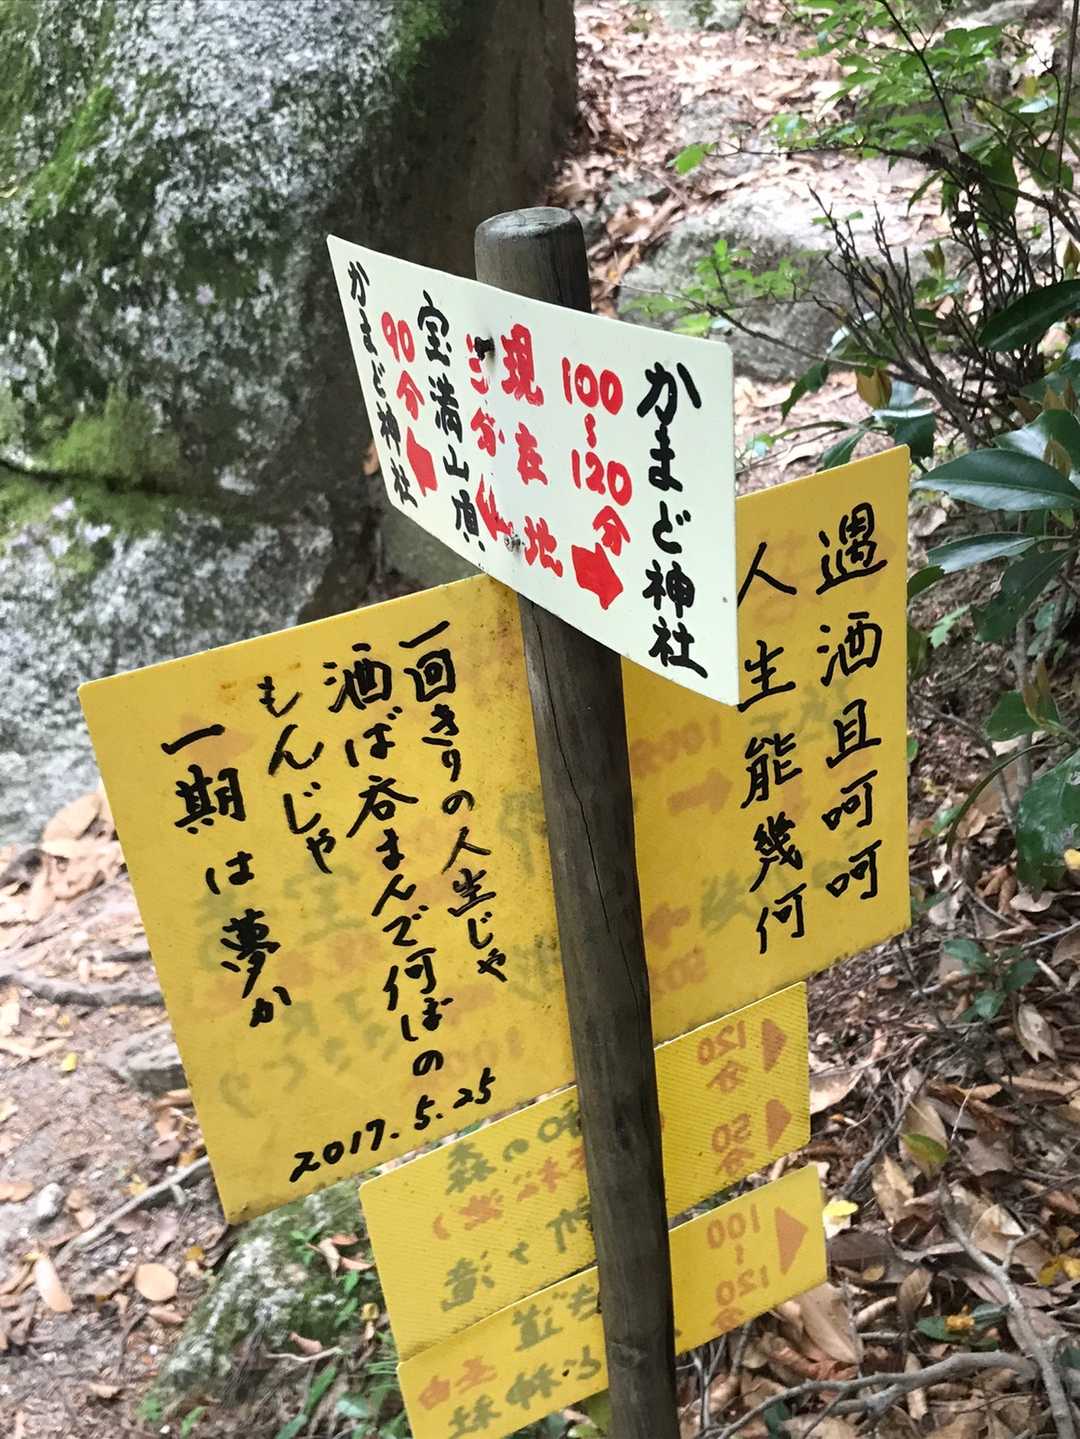 かまど神社
100〜120分
現在地
分
宝満山頂
90分
かまど神社
遇酒且呵呵
人生能幾何
一回きりの人生じゃ
酒ば呑まんで何ばの
もんじゃ
一期は夢か
2017.5.25
120分
50分
100〜120分